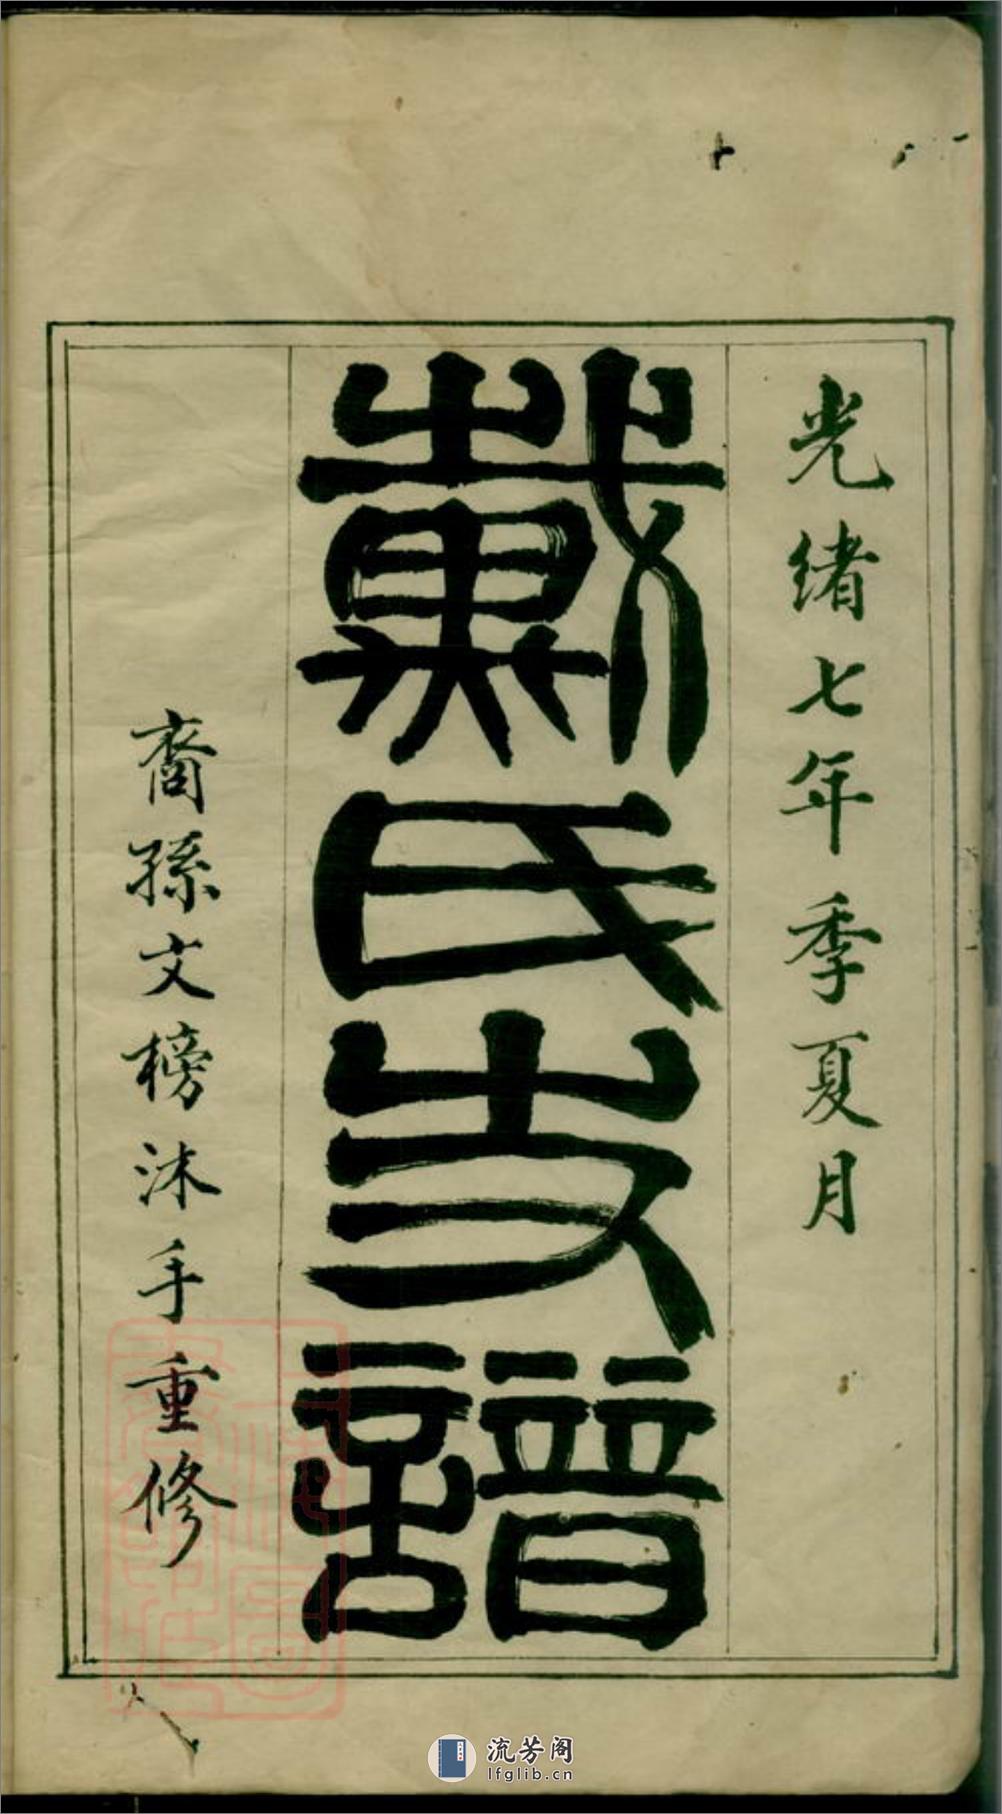 光緒七年季夏月
戴氏支譜
裔孫文榜沐手重修
流芳阁
lfglib.cn